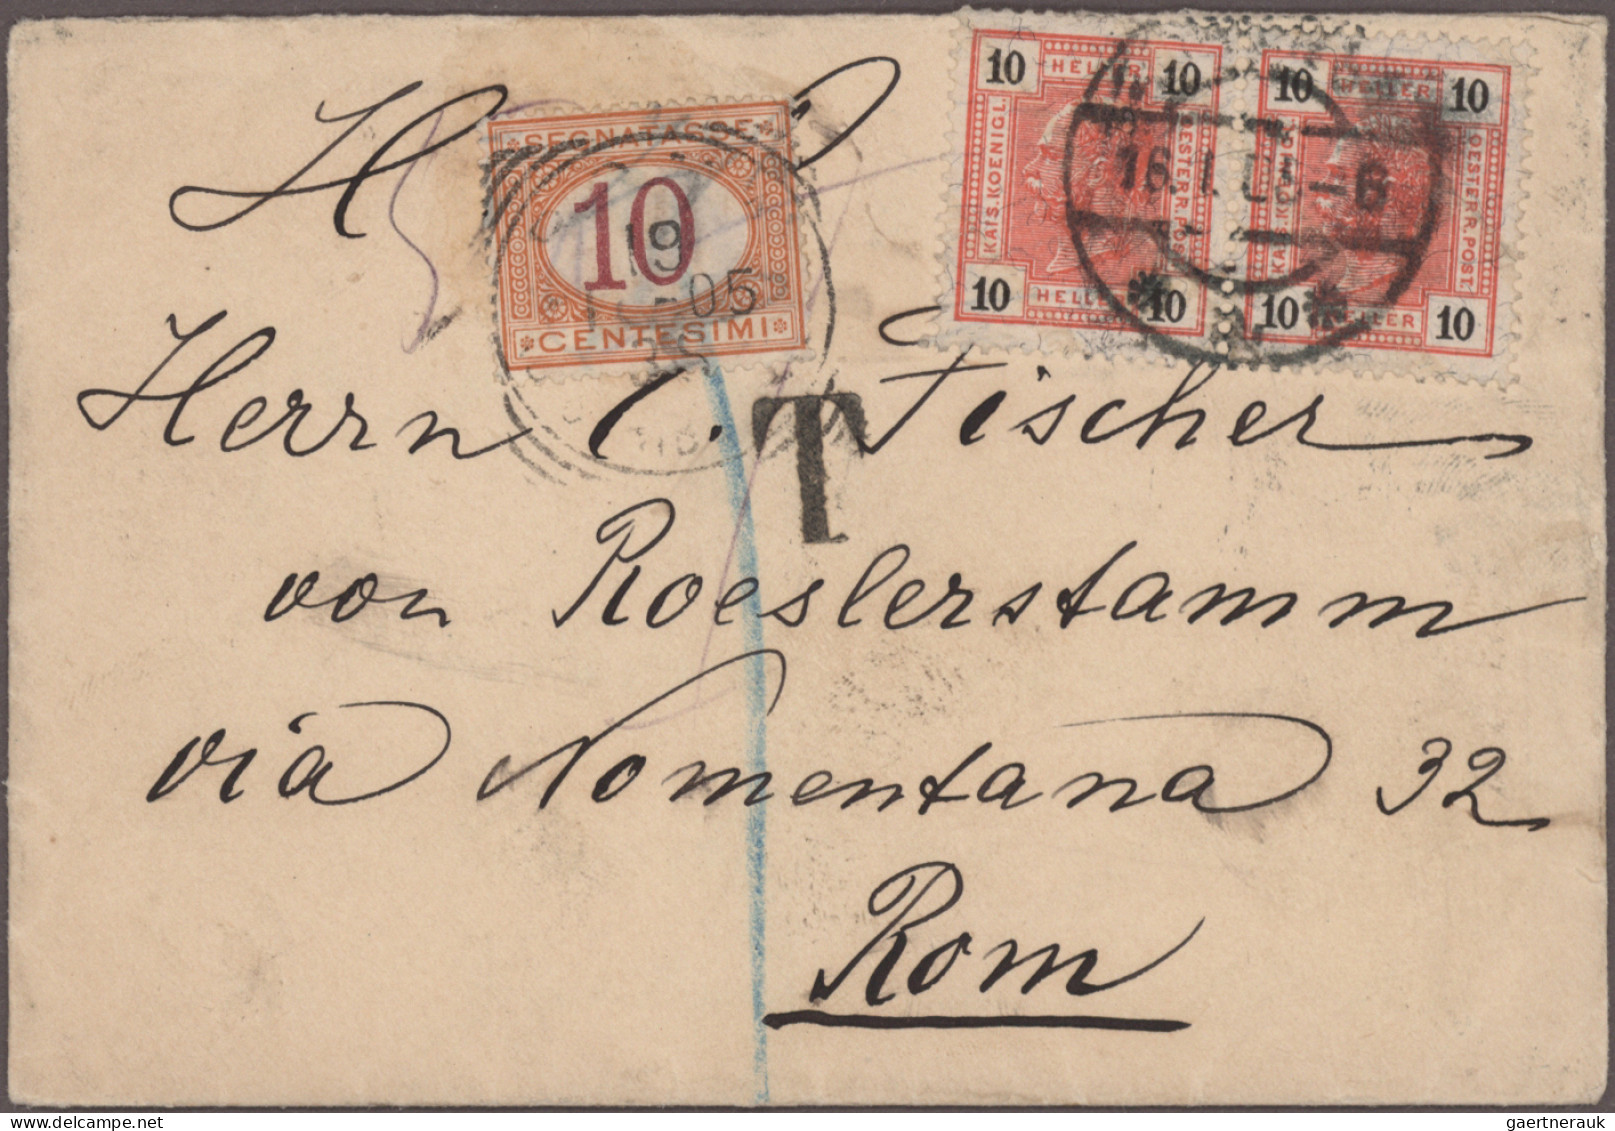 H
SEGNATASSE
10
CENTESIMI
19
05
10 HELLER 10
KAIS. KOENIGL.
OESTERR. POST
10 HELLER 10
10 HELLER 10
KAIS. KOENIGL.
OESTERR. POST.
10 HELLER 10
16. I. 05 - 6
T
Herrn C. Fischer
von Roeslerstamm
via Nomentana 32
Rom
gaertnerauk @ delcampe.net